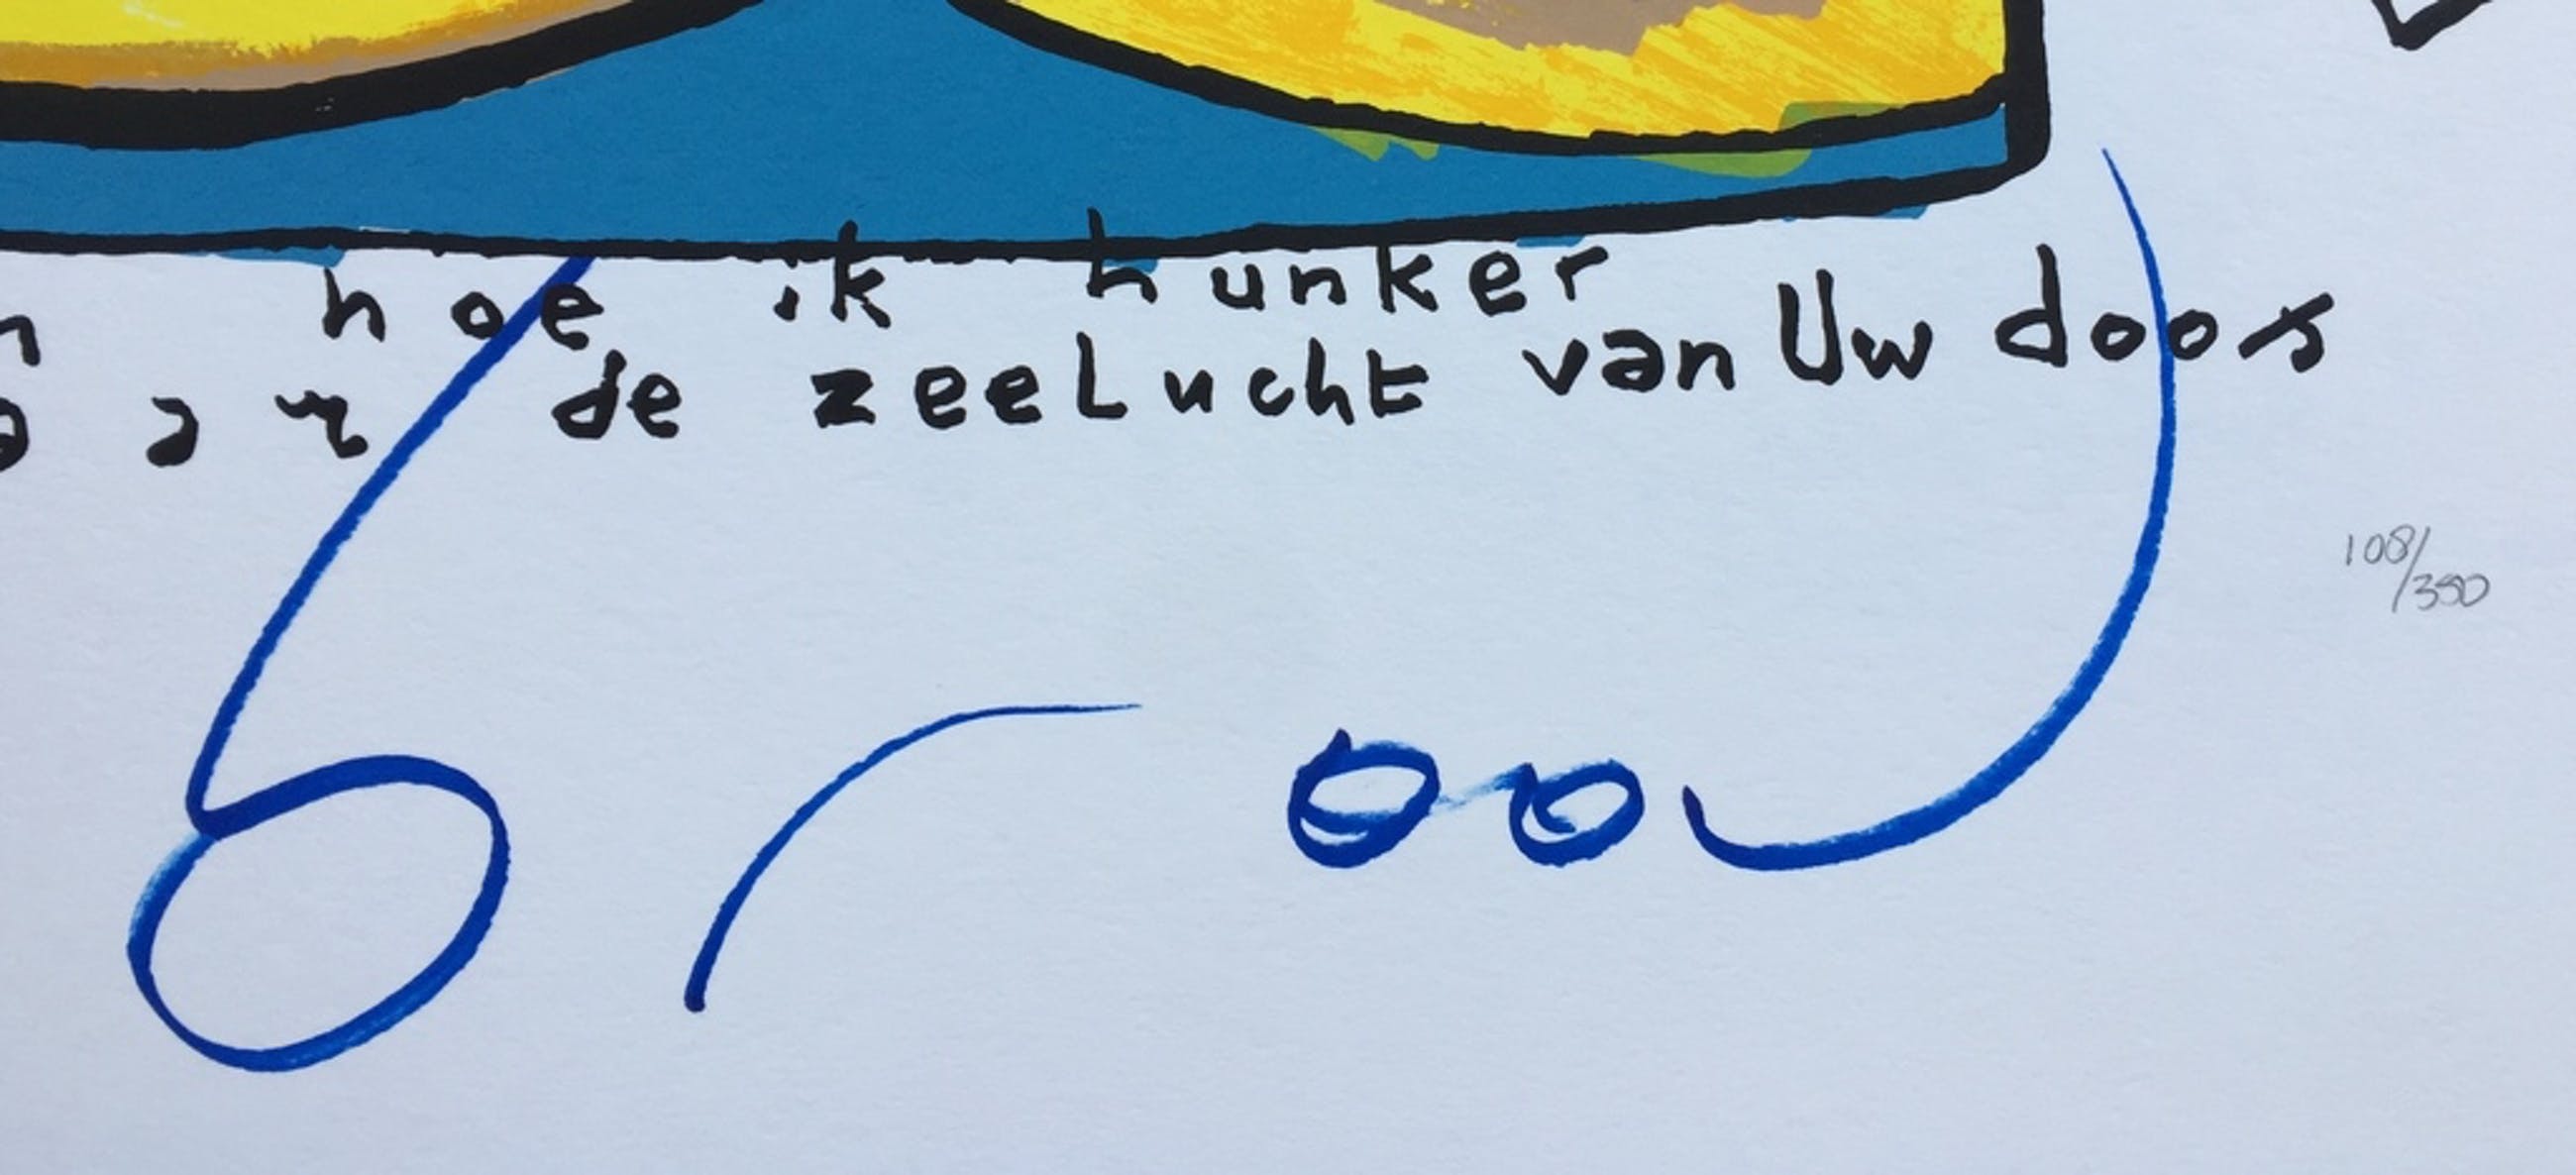 n hoe ik hunker
aar de zeeLucht van Uw doos
108/350
Brood